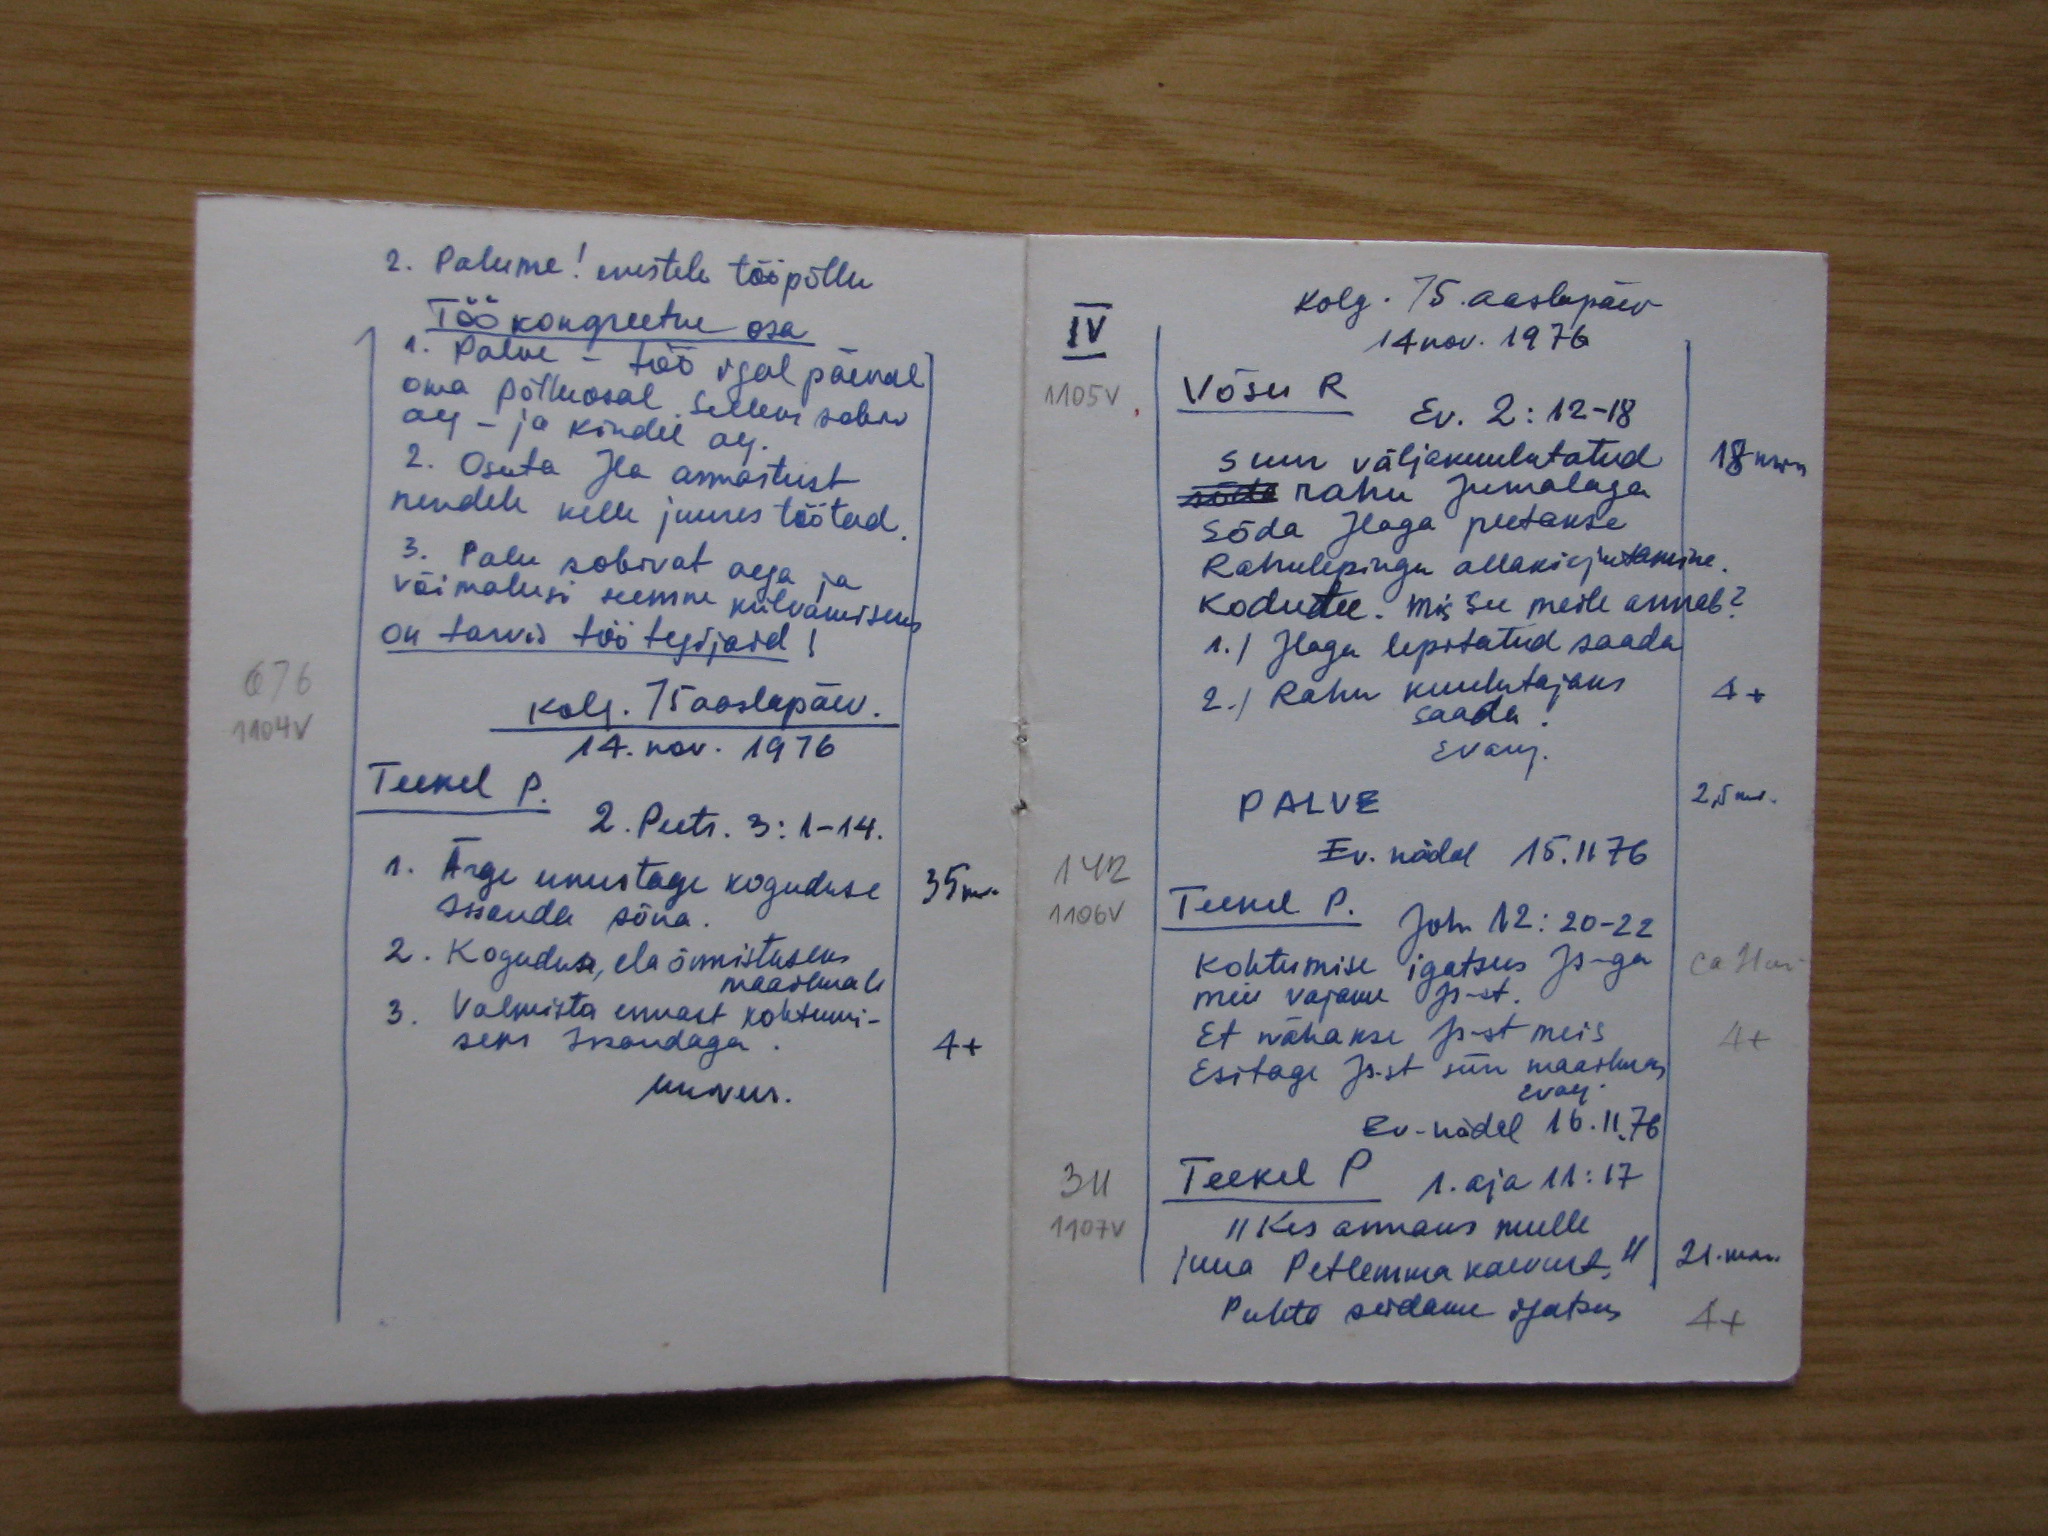 2. Palume! meistele tööpõllu
Töökongreetne osa
1. Palve - töö igal päeval
oma põlluosal. Selleks sobiv
aeg - ja kindel aeg.
2. Osuta Jla armastust
nendele kelle juures töötad.
3. Palu sobivat aega ja
võimalusi seemne külvamiseks
on tarvis töö tegijaid!
676
1104V
Kolg. 75 aastapäev.
14. nov. 1976
Teekel P.
2. Peetr. 3:1-14.
1. Ärge unustage koguduse 35 min.
Issanda sõna.
2. Kogudus, ela õnnistuseks
maailmale
3. Valmista ennast kohtumi-
seks Issandaga. 4+
IV
Kolg. 75. aastapäev
14 nov. 1976
1105V
Võsu R
Ev. 2:12-18
suur väljakuulutatud 18 min
sõda rahu Jumalaga
Sõda Jlaga peetakse
Rahulepingu allakirjutamine.
Kodutee. Mis see meile annab?
1.) Jlaga lepitatud saada
2.) Rahu kuulutajaks 4+
saada!
Evang.
PALVE 2,5 min.
Ev. nädal 15.11 76
142
1106V
Teekel P.
Joh 12:20-22
Kohtumise igatsus Js-ga ca
meie vajame Js-st.
Et nähakse Js-st meis 4+
Esitage Js-st siin maailmas
Evang.
Ev-nädal 16.11.76
311
1107V
Teekel P 1. aja 11:17
"Kes annaks mulle
juua Petlemma kaevust" 21. min.
Puhta südame igatsus 4+